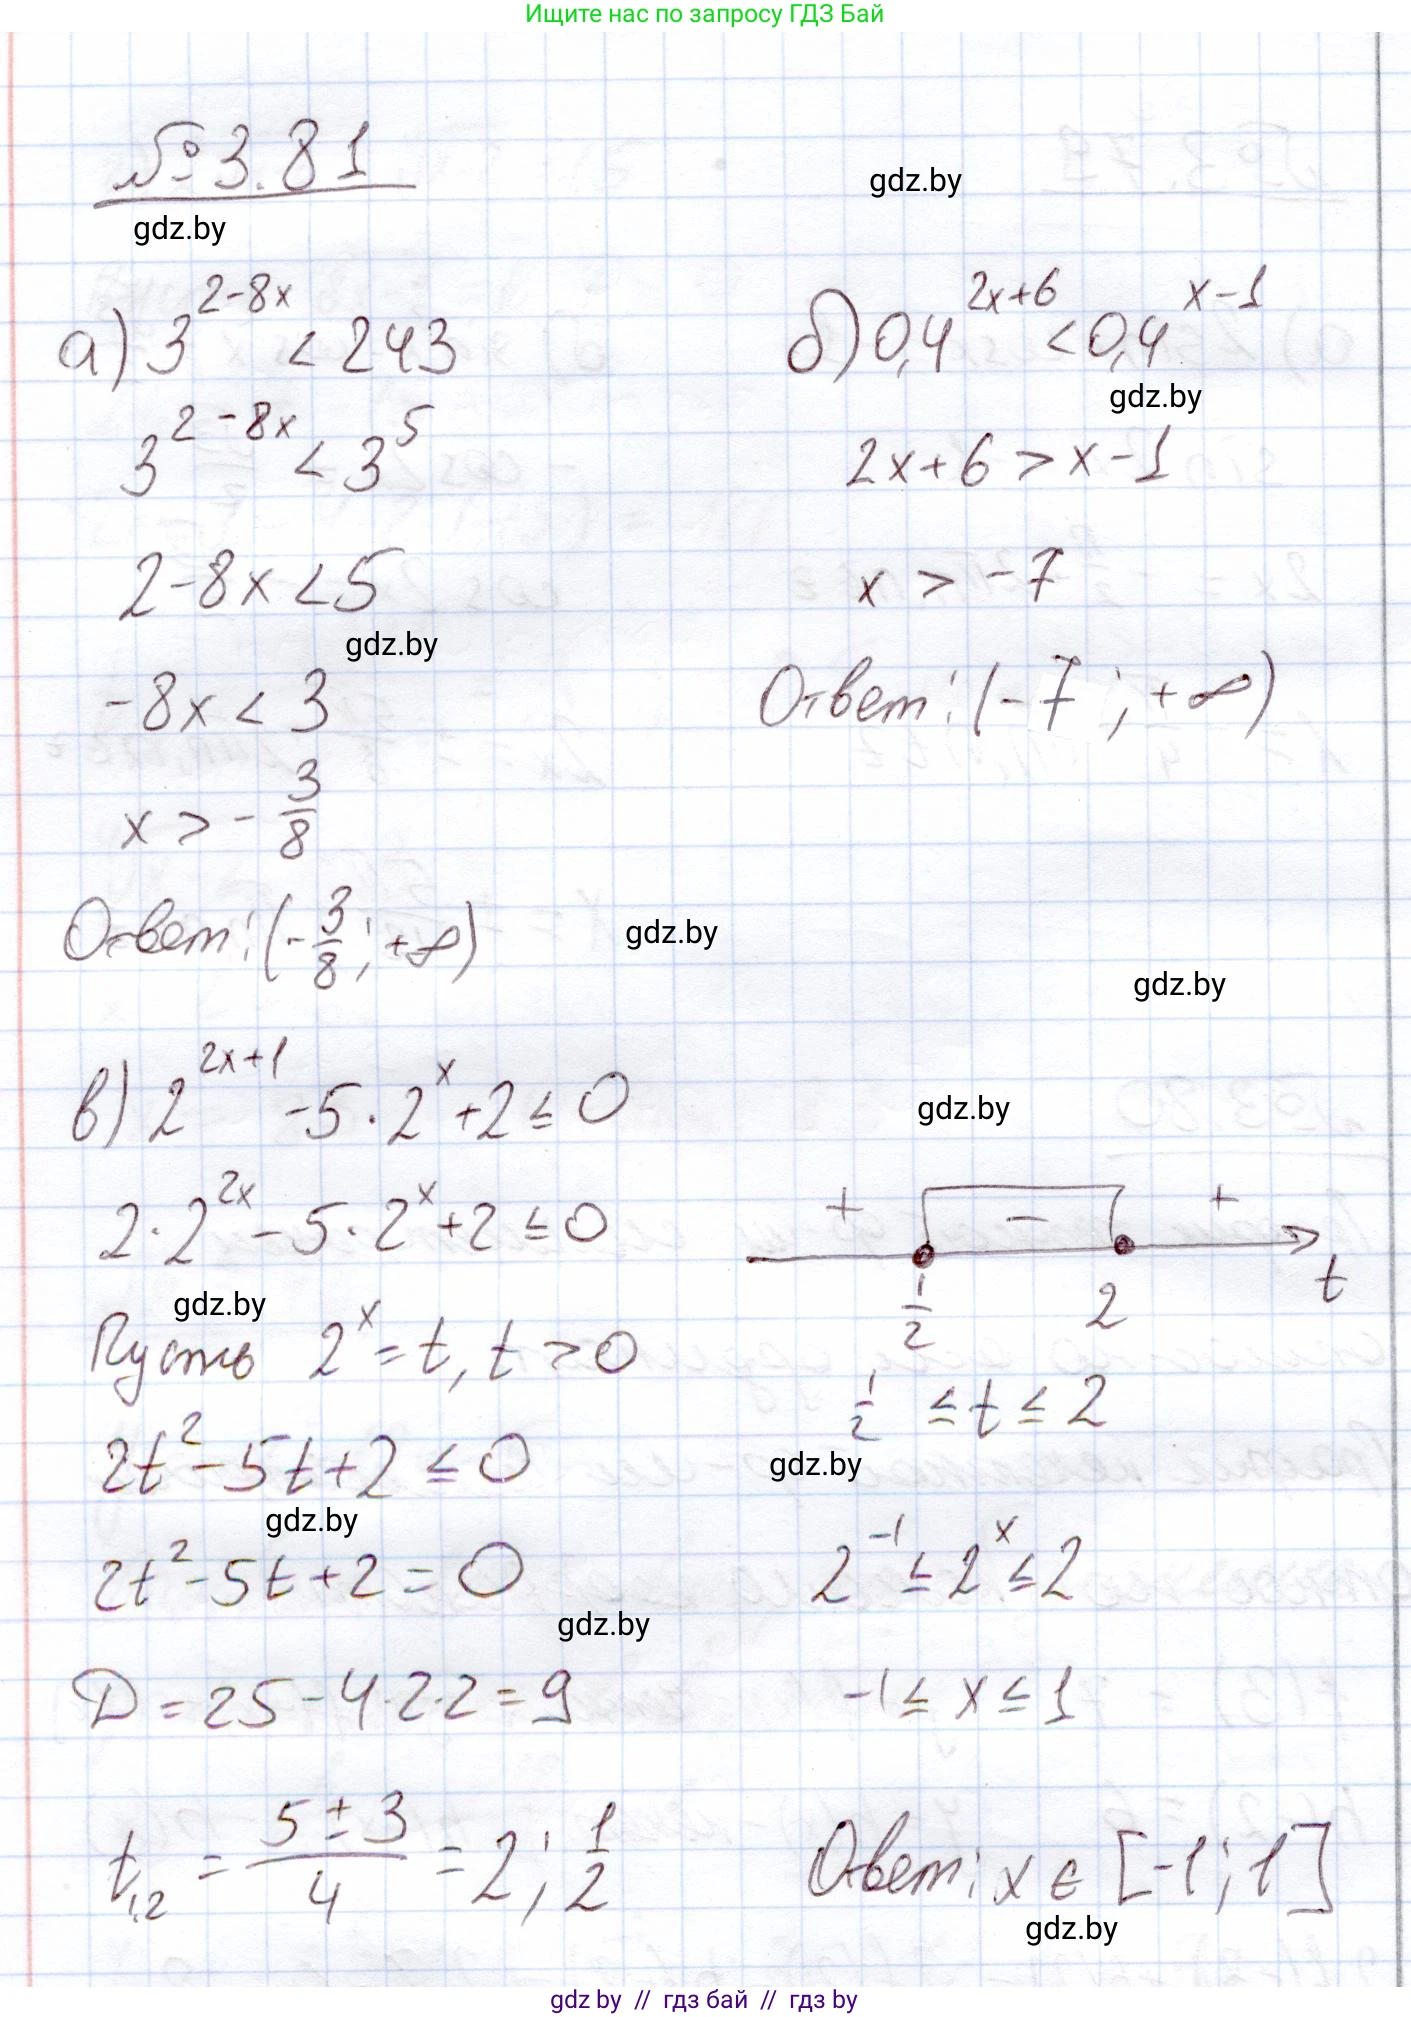 Ищите нас по запросу ГДЗ Бай
№ 3.81
gdz.by
gdz.by
а) 3^(2-8x) < 243
3^(2-8x) < 3^5
2-8x < 5
gdz.by
-8x < 3
x > -3/8
Ответ: (-3/8; +∞)
gdz.by
б) 0,4^(2x+6) < 0,4^(x-1)
gdz.by
2x+6 > x-1
x > -7
Ответ: (-7; +∞)
gdz.by
в) 2^(2x+1) - 5·2^x + 2 ≤ 0
2·2^(2x) - 5·2^x + 2 ≤ 0
gdz.by
Пусть 2^x = t, t > 0
2t² - 5t + 2 ≤ 0
gdz.by
2t² - 5t + 2 = 0
gdz.by
D = 25 - 4·2·2 = 9
t₁,₂ = (5 ± 3)/4 = 2; 1/2
gdz.by
+ - +
1/2 2 t
1/2 ≤ t ≤ 2
gdz.by
2^(-1) ≤ 2^x ≤ 2
-1 ≤ x ≤ 1
Ответ: x ∈ [-1; 1]
gdz.by
gdz by // гдз бай // гдз by